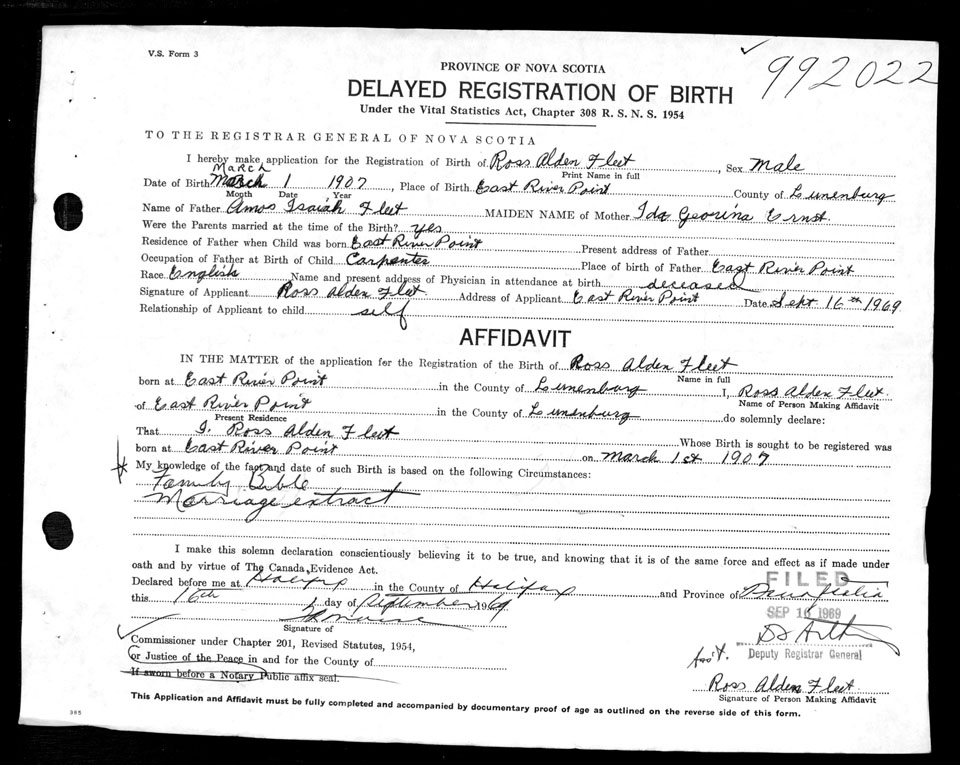 V.S. Form 3
992022
PROVINCE OF NOVA SCOTIA
DELAYED REGISTRATION OF BIRTH
Under the Vital Statistics Act, Chapter 308 R. S. N. S. 1954
TO THE REGISTRAR GENERAL OF NOVA SCOTIA
I hereby make application for the Registration of Birth of Ross Alden Fleet, Sex Male
Print Name in full
March
Date of Birth March 1 1907, Place of Birth East River Point County of Lunenburg
Month Date Year
Name of Father Amos Isaiah Fleet MAIDEN NAME of Mother Ida Georina Ernst.
Were the Parents married at the time of the Birth? yes
Residence of Father when Child was born East River Point Present address of Father
Occupation of Father at Birth of Child Carpenter Place of birth of Father East River Point
Race English Name and present address of Physician in attendance at birth deceased
Signature of Applicant Ross Alden Fleet Address of Applicant East River Point Date Sept 16th 1969
Relationship of Applicant to child self
AFFIDAVIT
IN THE MATTER of the application for the Registration of the Birth of Ross Alden Fleet
Name in full
born at East River Point in the County of Lunenburg I, Ross Alden Fleet.
Name of Person Making Affidavit
of East River Point in the County of Lunenburg do solemnly declare:
Present Residence
That I. Ross Alden Fleet Whose Birth is sought to be registered was
born at East River Point on March 1st 1907
My knowledge of the fact and date of such Birth is based on the following Circumstances:
Family Bible
Marriage extract
I make this solemn declaration conscientiously believing it to be true, and knowing that it is of the same force and effect as if made under
oath and by virtue of The Canada Evidence Act.
Declared before me at Halifax in the County of Halifax and Province of Nova Scotia
FILED
this 16th day of September 1969
SEP 16 1969
Signature of
Commissioner under Chapter 201, Revised Statutes, 1954,
or Justice of the Peace in and for the County of
If sworn before a Notary Public affix seal.
Ass't. Deputy Registrar General
Ross Alden Fleet
Signature of Person Making Affidavit
This Application and Affidavit must be fully completed and accompanied by documentary proof of age as outlined on the reverse side of this form.
385